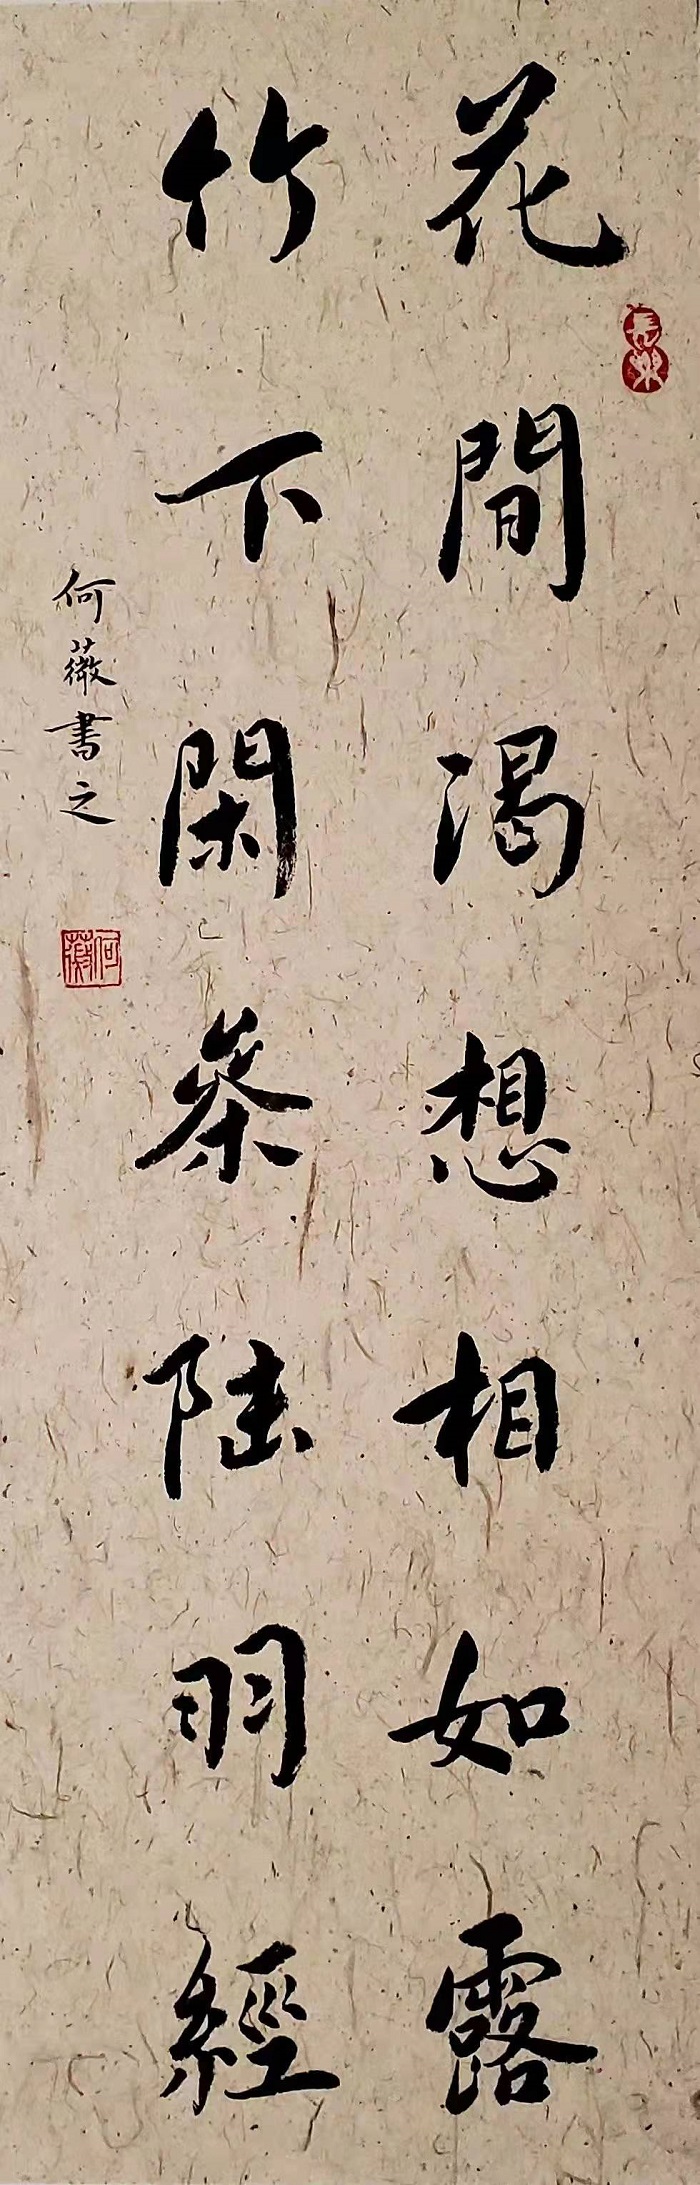 花間渴想相如露
竹下閑參陸羽經
何薇書之
何薇